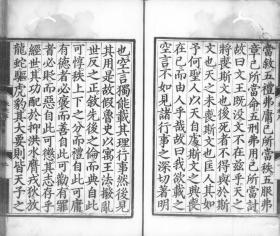 當敘五禮弗庸己所當秩五服弗
章己所當命五刑弗用己所當討
故曰文王既沒文不在茲乎天之
將喪斯文也後死者不得與於斯
文也天之未喪斯文也匡人其如
予何聖人以天自處斯文之興喪
在己而由人乎哉故曰我欲載之
空言不如見諸行事之深切著明
也空言獨能載其理行事然後見
其用是故假魯史以寓王法撥亂
世反之正敘先後之倫而典自此
可惇秩上下之分而禮自此可庸
有德者必褒而善自此可勸有罪
者必貶而惡自此可懲其志存乎
經世其功配於抑洪水膺戎狄放
龍蛇驅虎豹其大要則皆天子之